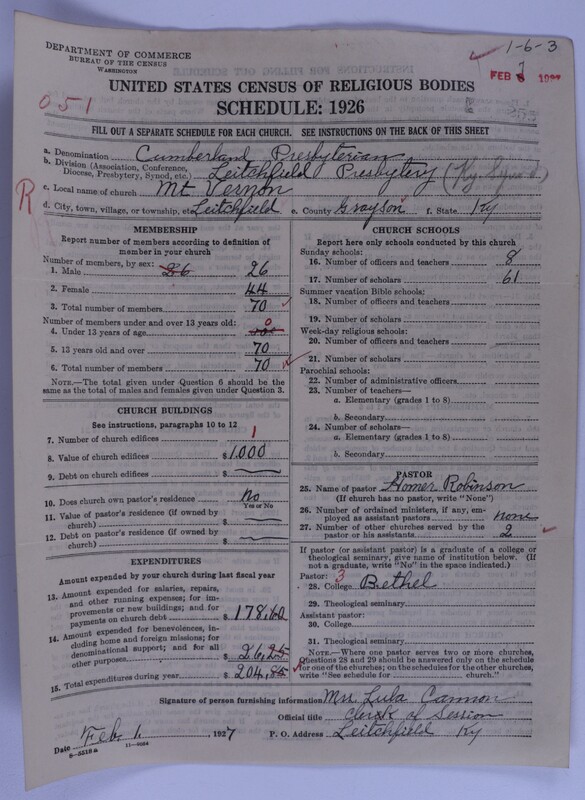 1-6-3
DEPARTMENT OF COMMERCE
BUREAU OF THE CENSUS
WASHINGTON
FEB 1927
UNITED STATES CENSUS OF RELIGIOUS BODIES
051
SCHEDULE: 1926
FILL OUT A SEPARATE SCHEDULE FOR EACH CHURCH. SEE INSTRUCTIONS ON THE BACK OF THIS SHEET
a. Denomination Cumberland Presbyterian
b. Division (Association, Conference, Diocese, Presbytery, Synod, etc.) Leitchfield Presbytery (Ky. Synod)
R
c. Local name of church Mt Vernon
d. City, town, village, or township, etc. Leitchfield e. County Grayson f. State Ky
MEMBERSHIP
Report number of members according to definition of
member in your church
Number of members, by sex:
1. Male 26 26
2. Female 44
3. Total number of members 70
Number of members under and over 13 years old:
4. Under 13 years of age 0
5. 13 years old and over 70
6. Total number of members 70
NOTE.—The total given under Question 6 should be
same as the total of males and females given under Question 3.
CHURCH BUILDINGS
See instructions, paragraphs 10 to 12
7. Number of church edifices 1
8. Value of church edifices $ 1000
9. Debt on church edifices $
10. Does church own pastor's residence No
Yes or No
11. Value of pastor's residence (if owned by
church) $
12. Debt on pastor's residence (if owned by
church) $
EXPENDITURES
Amount expended by your church during last fiscal year
13. Amount expended for salaries, repairs,
and other running expenses; for im-
provements or new buildings; and for
payments on church debt $ 178.60
14. Amount expended for benevolences, in-
cluding home and foreign missions; for
denominational support; and for all
other purposes $ 26.25
15. Total expenditures during year $ 204.85
CHURCH SCHOOLS
Report here only schools conducted by this church
Sunday schools:
16. Number of officers and teachers 8
17. Number of scholars 61
Summer vacation Bible schools:
18. Number of officers and teachers
19. Number of scholars
Week-day religious schools:
20. Number of officers and teachers
21. Number of scholars
Parochial schools:
22. Number of administrative officers
23. Number of teachers—
a. Elementary (grades 1 to 8)
b. Secondary
24. Number of scholars—
a. Elementary (grades 1 to 8)
b. Secondary
PASTOR
25. Name of pastor Homer Robinson
(If church has no pastor, write "None")
26. Number of ordained ministers, if any, em-
ployed as assistant pastors none
27. Number of other churches served by the
pastor or his assistants 2
If pastor (or assistant pastor) is a graduate of a college or
theological seminary, give name of institution below. (If
not a graduate, write "No" in the space indicated.)
Pastor: 3
28. College Bethel
29. Theological seminary
Assistant pastor:
30. College
31. Theological seminary
NOTE.—Where one pastor serves two or more churches,
Questions 28 and 29 should be answered only on the schedule
for one of the churches; on the schedules for the other churches,
write "See schedule for church."
Signature of person furnishing information Mrs. Lula Cannon
Official title Clerk of Session
Date Feb. 1, 1927 P. O. Address Leitchfield Ky
8-5318a 11-8684